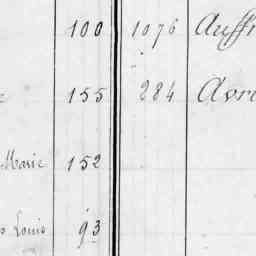 100 1076 Auffr
155 284 Avri
Marie 152
Louis 93